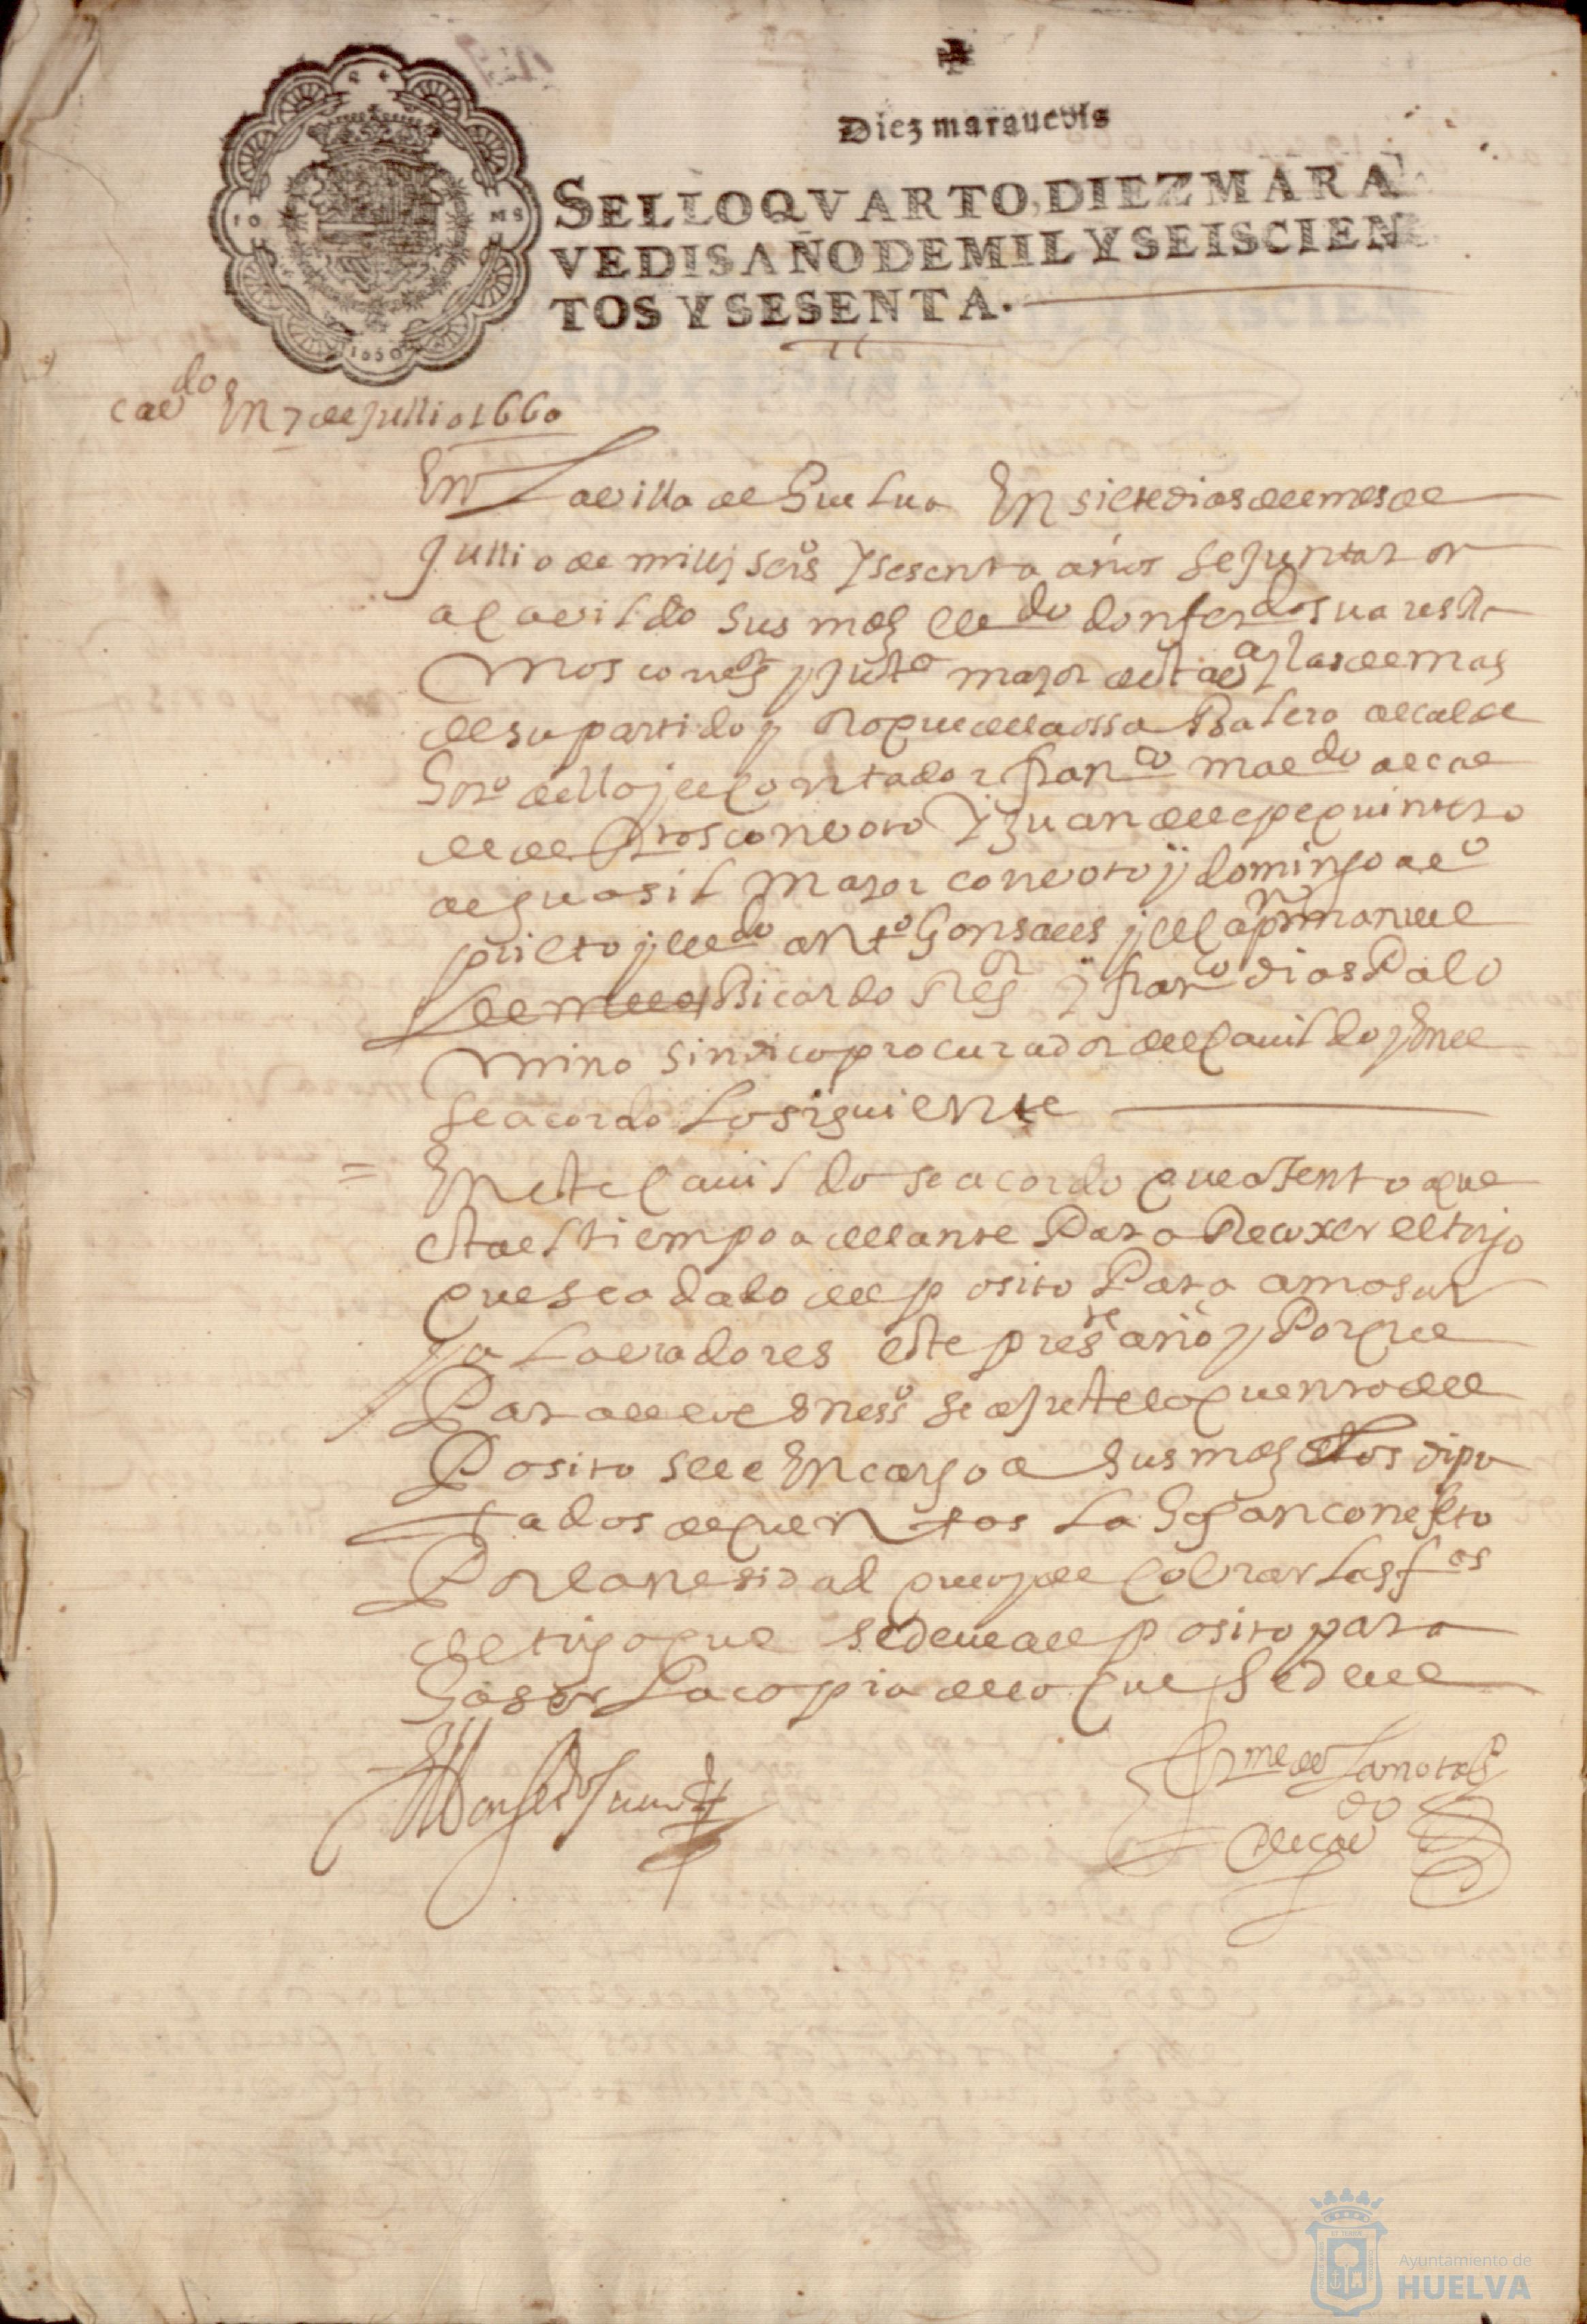 Diez marauedis
SELLO QVARTO, DIEZ MARA
VEDIS AÑO DE MIL Y SEISCIEN
TOS Y SESENTA.
1650
cavdo En 7 de Jullio 1660
En La villa de Guelua En siete dias del mes de
Jullio de mill y seiso y sesenta años se juntaron
a cavildo sus mds el ldo don ferdo suares Ra
mos corregor y justa mayor desta va y las demas
de su partido y Roque de la ossa Balero alcalde
hordo della y el contador franco maldo alcal
de de con voto y Juan de lepe quintero
alguasil mayor con voto y domingo alo
prieto y el ldo anto Gonsales y el capn manuel
Bicardo Regor y franco dias Palo
mino sindico procurador del cauildo y en el
se acordo Lo siguiente
= En este cauildo se acordo que atento que
esta el tiempo adelante Para Recoxer el trigo
que se a dado del posito Para amasar
y a Labradores este preste año y Porque
Para ello es neseso se ajuste la quenta del
Posito se le encargo a sus mds Los dipu
tados de quentas La hagan con efeto
Por la nesesidad que ay de cobrar Las fas
del trigo que se deue al posito para
haser La copia de lo que se deue
de cavdo
Ayuntamiento de
HUELVA